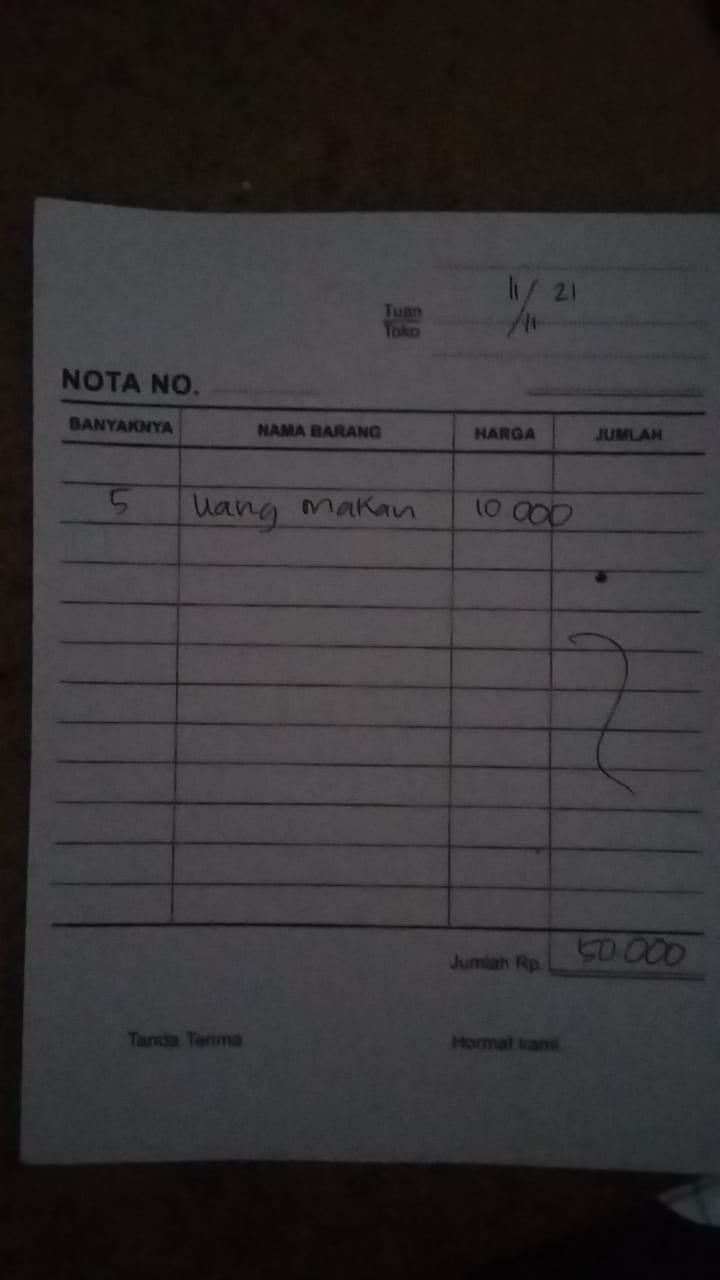 11/11 21
Tuan
Toko
NOTA NO.
BANYAKNYA NAMA BARANG HARGA JUMLAH
5 Uang makan 10 000
Jumlah Rp. 50 000
Tanda Terima Hormat kami